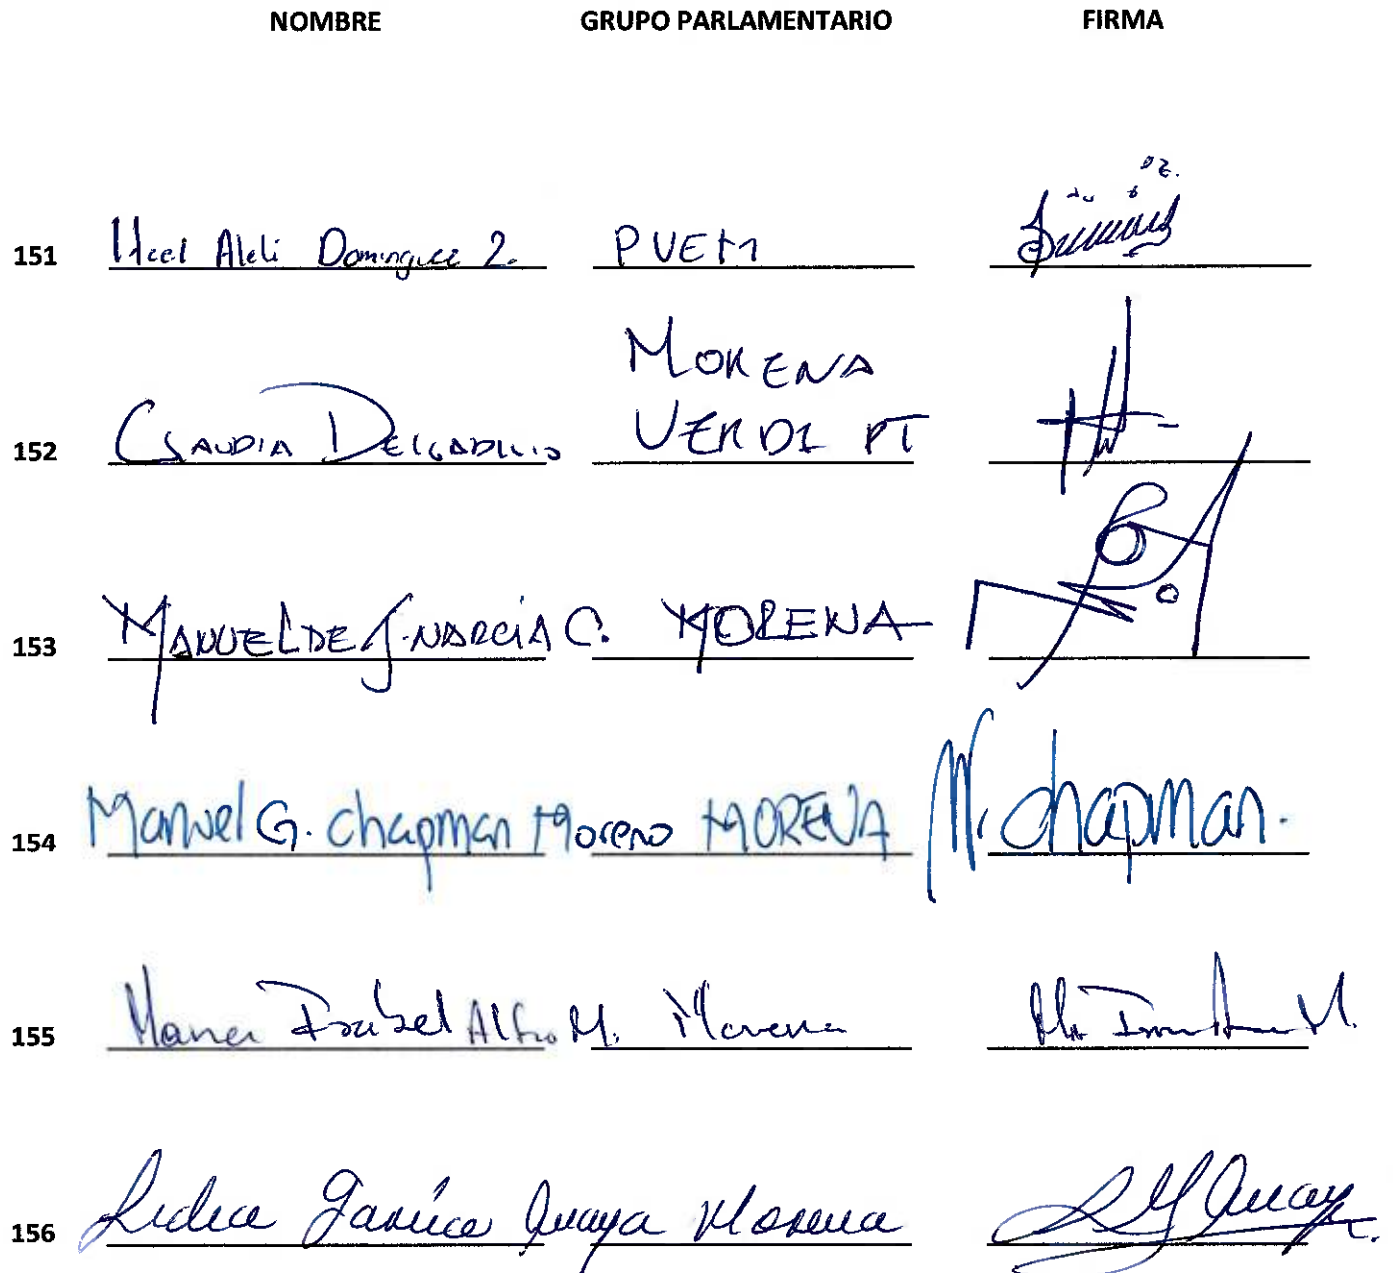 NOMBRE GRUPO PARLAMENTARIO FIRMA
151 Itzel Aleli Dominguez Z. PVEM
MORENA
152 CLAUDIA DELGADILLO VERDE PT
153 MANUEL DE J. NARCIA C. MORENA
154 Manuel G. Chapman Moreno MORENA M. Chapman.
155 Maria Isabel Alfaro M. Morena
156 Lidia García Anaya Morena